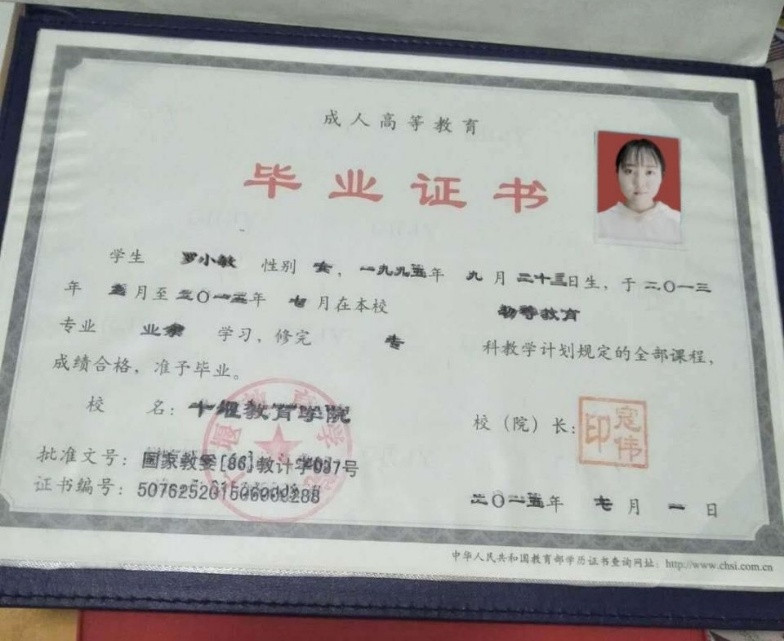 成人高等教育
毕业证书
学生 罗小敏 性别 女，一九九五年 九月二十三日生，于二〇一三
年 三月至二〇一五年 七月在本校 初等教育
专业 业余 学习，修完 专 科教学计划规定的全部课程，
成绩合格，准予毕业。
校 名：十堰教育学院
校（院）长：
寇伟印
批准文号：国家教委[86]教计字037号
证书编号：507625201506000288
二〇一五年 七月 一日
中华人民共和国教育部学历证书查询网址：http://www.chsi.com.cn